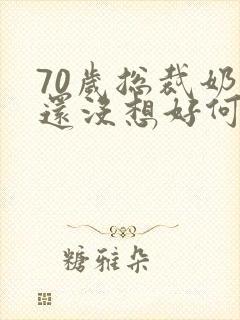 70歲總裁奶
還沒想好何
糖雅朵